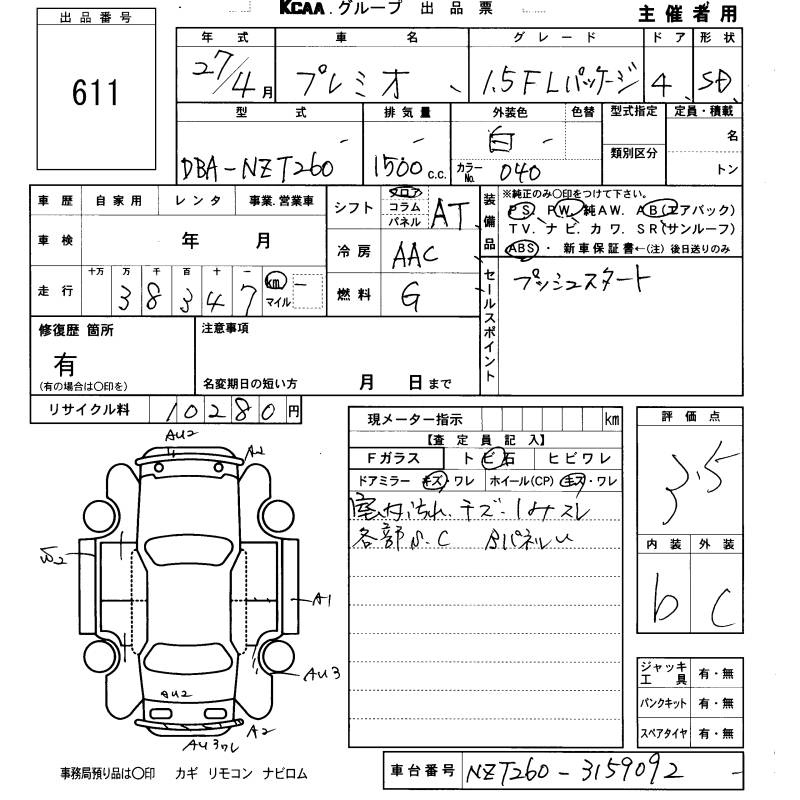 KCAA.グループ 出品票
主催者用
出品番号
611
年式 車名 グレード ドア 形状
27/4月 プレミオ 1.5FLパッケージ 4 SD
型式 排気量 外装色 色替 型式指定 定員・積載
DBA-NZT260 1500c.c. 白 カラーNo. 040 類別区分 名
トン
車歴 自家用 レンタ 事業.営業車
車検 年 月
走行 十万 万 千 百 十 一
38347 km マイル
シフト フロア コラム パネル AT
冷房 AAC
燃料 G
装備品 ※純正のみ〇印をつけて下さい。
PS. PW. 純AW. AB(エアバック)
TV. ナビ. カワ. SR(サンルーフ)
ABS・ 新車保証書←(注)後日送りのみ
セールスポイント
プッシュスタート
修復歴 箇所 注意事項
有
(有の場合は〇印を) 名変期日の短い方 月 日まで
リサイクル料 10280円
現メーター指示 km
【査定員記入】
Fガラス トビ石 ヒビワレ
ドアミラー キズ・ワレ ホイール(CP) キズ・ワレ
室内汚れ.キズ.シミスレ
各部S.C BパネルU
評価点
3.5
内装 外装
b C
ジャッキ工具 有・無
パンクキット 有・無
スペアタイヤ 有・無
AU2
A2
W2
A1
AU3
AU2
A2
AU3ワレ
事務局預り品は〇印 カギ リモコン ナビロム
車台番号 NZT260-3159092